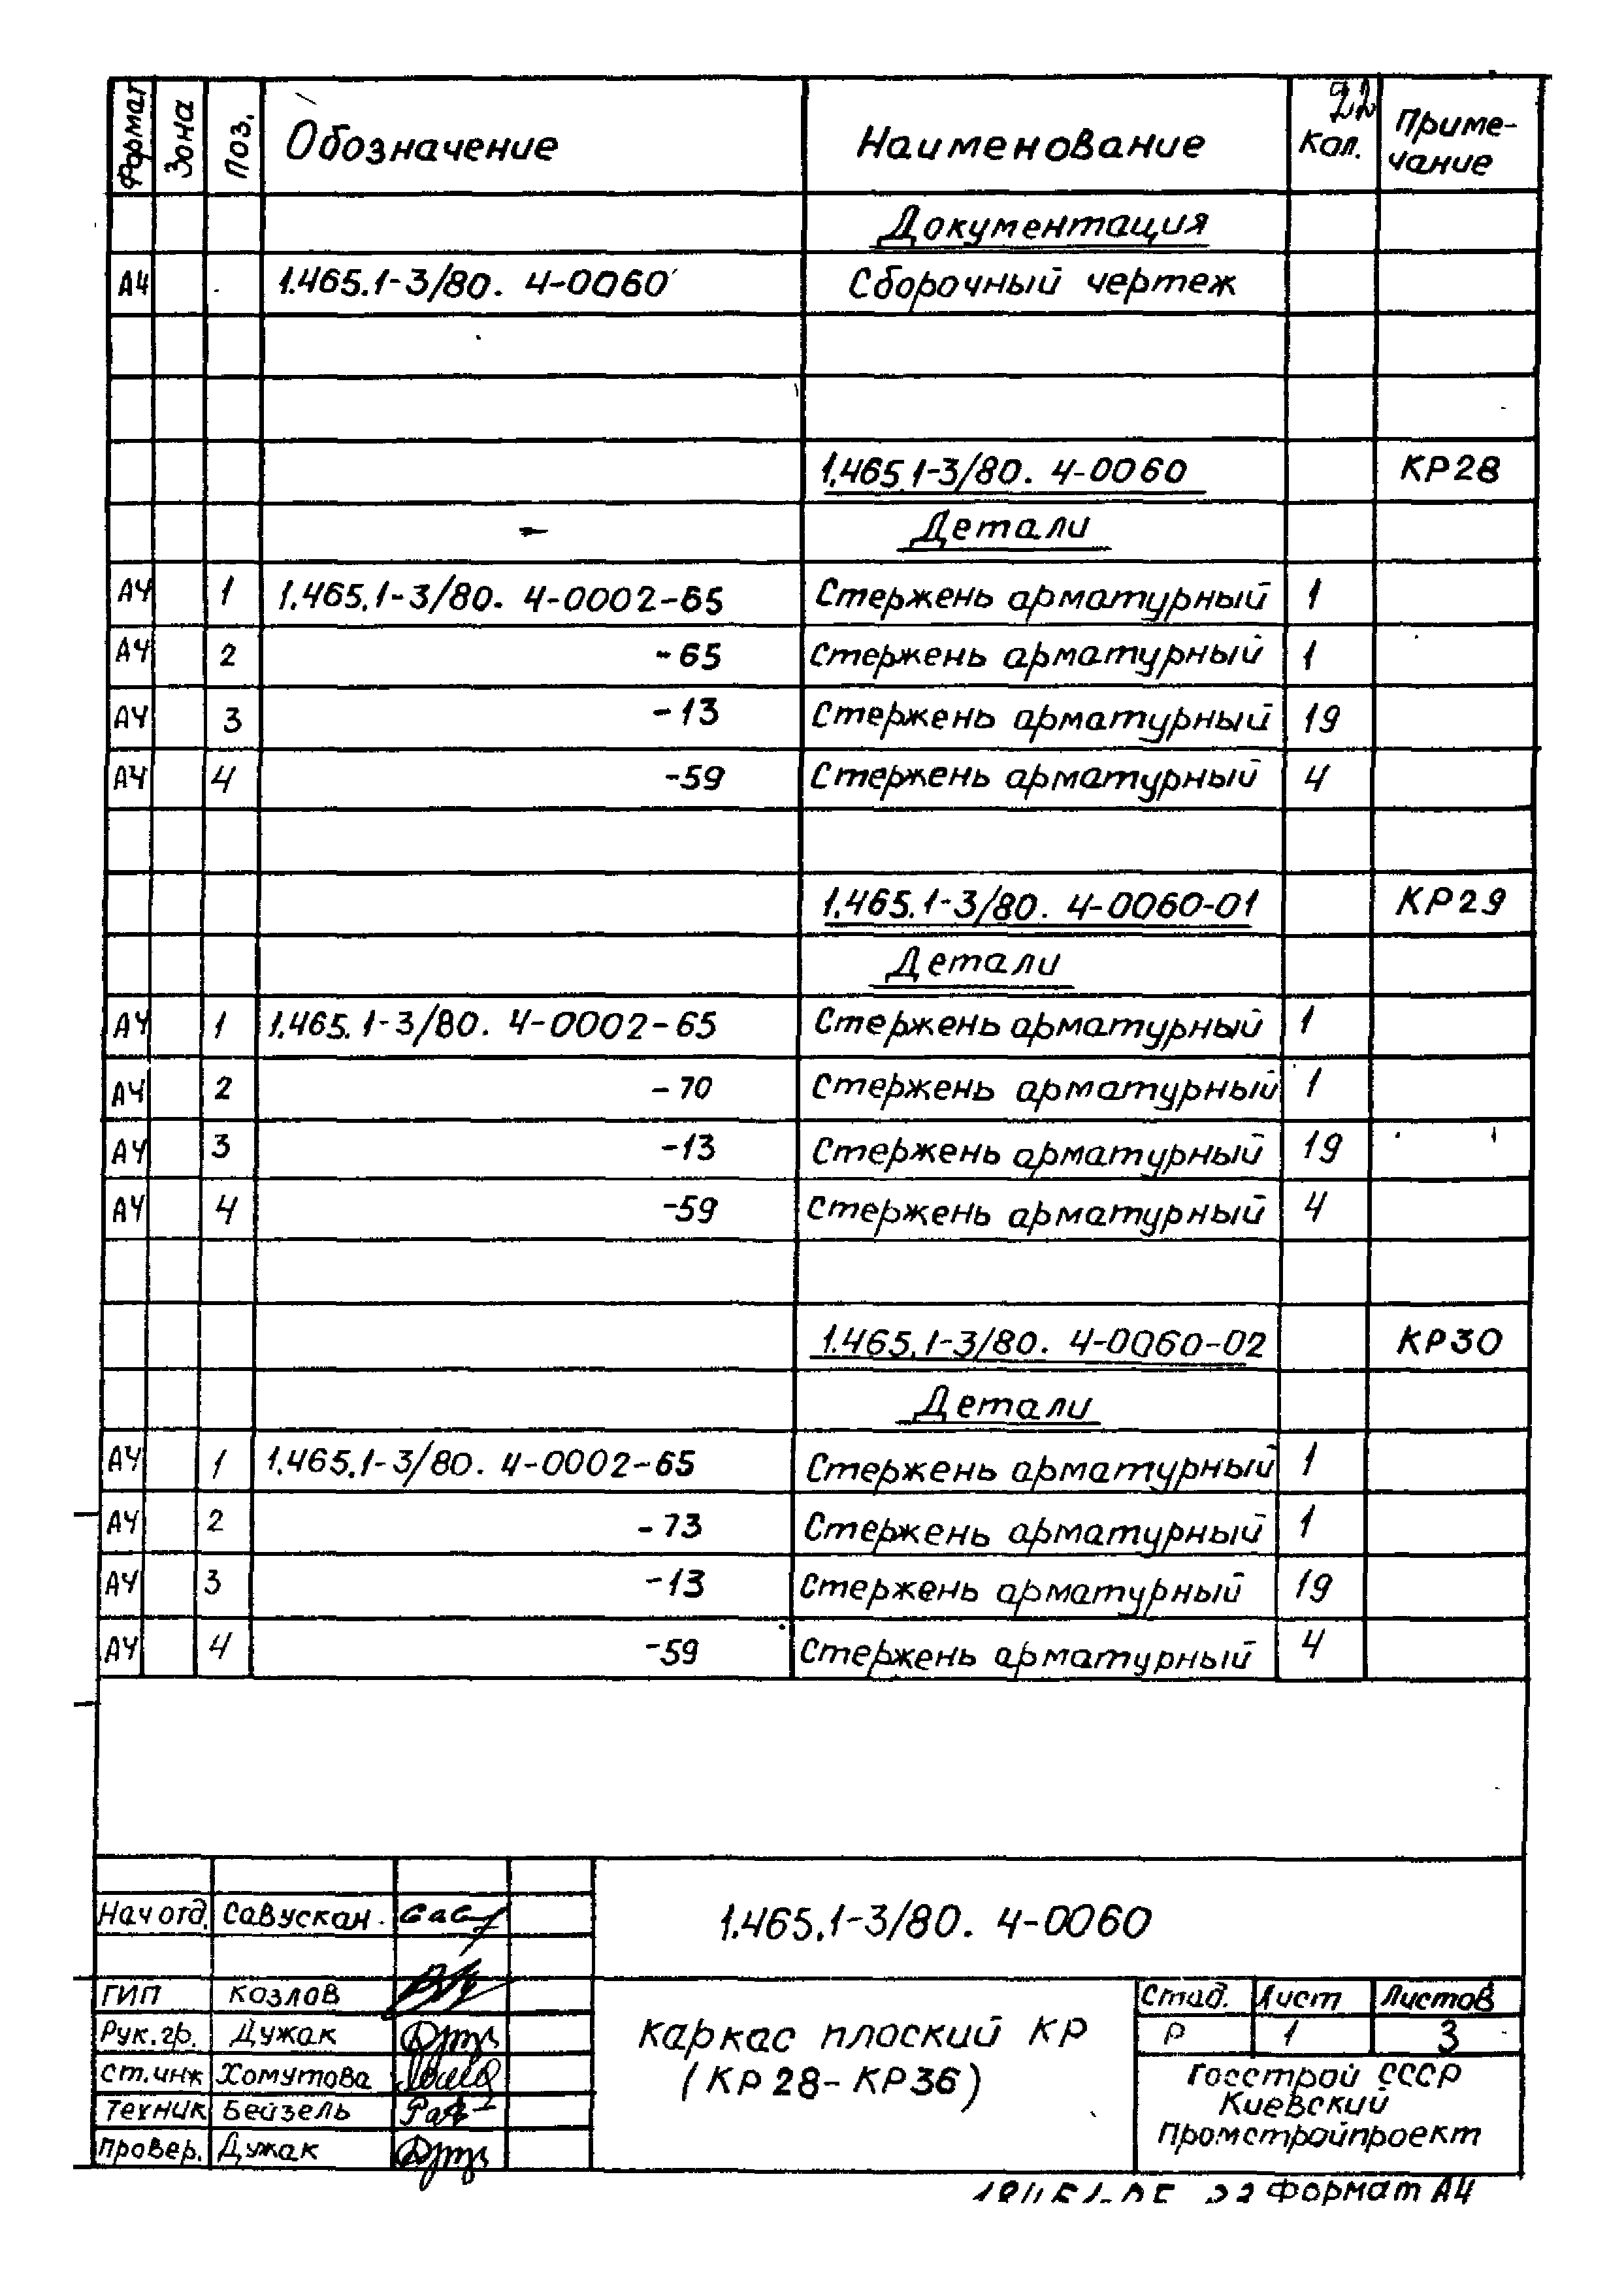 22
Формат Зона Поз. Обозначение Наименование Кол. Приме-
чание
Документация
А4 1.465.1-3/80. 4-0060 Сборочный чертеж
1.465.1-3/80. 4-0060 КР28
Детали
А4 1 1.465.1-3/80. 4-0002-65 Стержень арматурный 1
А4 2 -65 Стержень арматурный 1
А4 3 -13 Стержень арматурный 19
А4 4 -59 Стержень арматурный 4
1.465.1-3/80. 4-0060-01 КР29
Детали
А4 1 1.465.1-3/80. 4-0002-65 Стержень арматурный 1
А4 2 -70 Стержень арматурный 1
А4 3 -13 Стержень арматурный 19
А4 4 -59 Стержень арматурный 4
1.465.1-3/80. 4-0060-02 КР30
Детали
А4 1 1.465.1-3/80. 4-0002-65 Стержень арматурный 1
А4 2 -73 Стержень арматурный 1
А4 3 -13 Стержень арматурный 19
А4 4 -59 Стержень арматурный 4
Нач отд. Савускан
1.465.1-3/80. 4-0060
ГИП Козлов
Рук.гр. Дужак
Ст.инж Хомутова
Техник Бейзель
Провер. Дужак
Каркас плоский КР
(КР28-КР36)
Стад. Лист Листов
Р 1 3
Госстрой СССР
Киевский
Промстройпроект
Формат А4